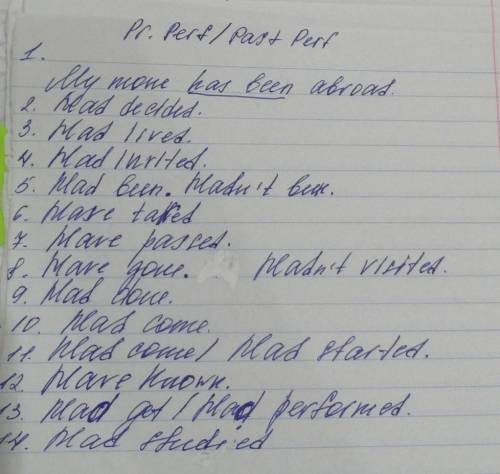 Pr. Perf / Past Perf
1.
My mom has been abroad.
2. Had decided.
3. Had lived.
4. Had invited.
5. Had been. Hadn't been.
6. Have talked
7. Have passed.
8. Have gone. Hadn't visited.
9. Had done.
10. Had come.
11. Had come / Had started.
12. Have known.
13. Had got / Had performed.
14. Had studied